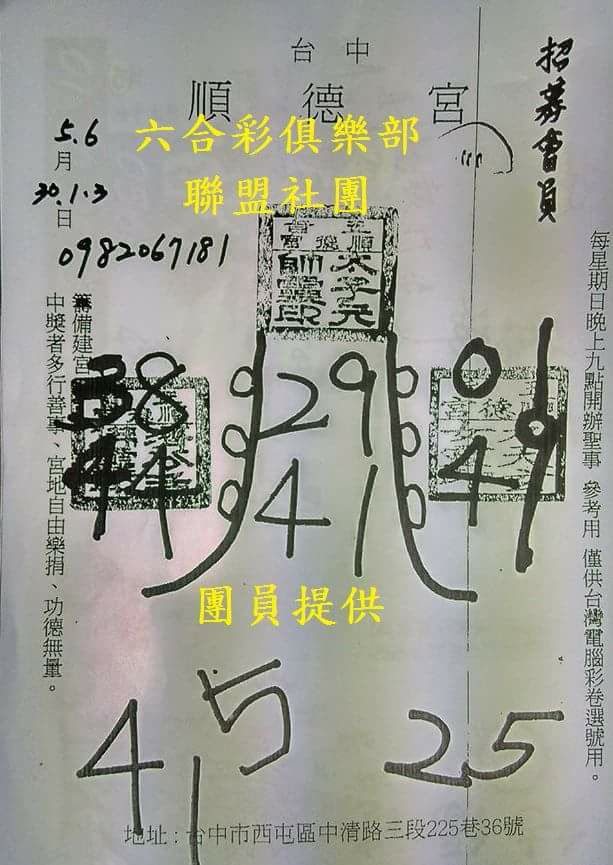 台中
順德宮
招募會員
六合彩俱樂部
聯盟社團
5.6
月
30.1.3
日
0982067181
每星期日晚上九點開辦聖事 參考用 僅供台灣電腦彩卷選號用。
籌備建宮
中獎者多行善事、宮地自由樂捐、功德無量。
38 29 01
44 41 49
團員提供
4 5 25
地址：台中市西屯區中清路三段225巷36號